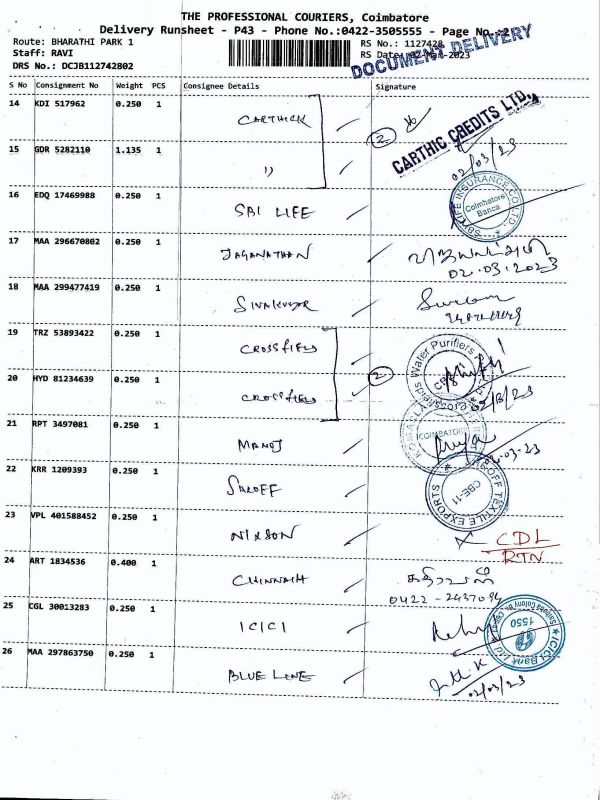 THE PROFESSIONAL COURIERS, Coimbatore
Delivery Runsheet - P43 - Phone No.:0422-3505555 - Page No.:2
Route: BHARATHI PARK 1
RS No.: 1127428
Staff: RAVI
RS Date: 02-Mar-2023
DOCUMENT DELIVERY
DRS No.: DCJB112742802
S No Consignment No Weight PCS Consignee Details Signature
14 KDI 517962 0.250 1 CARTHICK
2
CARTHIC CREDITS LTD.,
15 GDR 5282110 1.135 1 ,,
02/03/23
16 EDQ 17469988 0.250 1 SBI LIFE
SBI LIFE INSURANCE CO. LTD.
Coimbatore
Banca
17 MAA 296670802 0.250 1 JAGANATHAN
02.03.2023
18 MAA 299477419 0.250 1 SIVAKUMAR
19 TRZ 53893422 0.250 1 CROSSFIELD
2
20 HYD 81234639 0.250 1 CROSSFIELD
21 RPT 3497081 0.250 1 MANOJ
COIMBATORE
22 KRR 1209393 0.250 1 SAROFF
SAROFF TEXTILE EXPORTS
CBE-11
23 VPL 401588452 0.250 1 NIXSON
CDL
RTN
24 ART 1834536 0.400 1 CHINNAIH
0422-2437094
25 CGL 30013283 0.250 1 ICICI
ICICI Bank Ltd.
1550
26 MAA 297863750 0.250 1 BLUE LINE
02/03/23